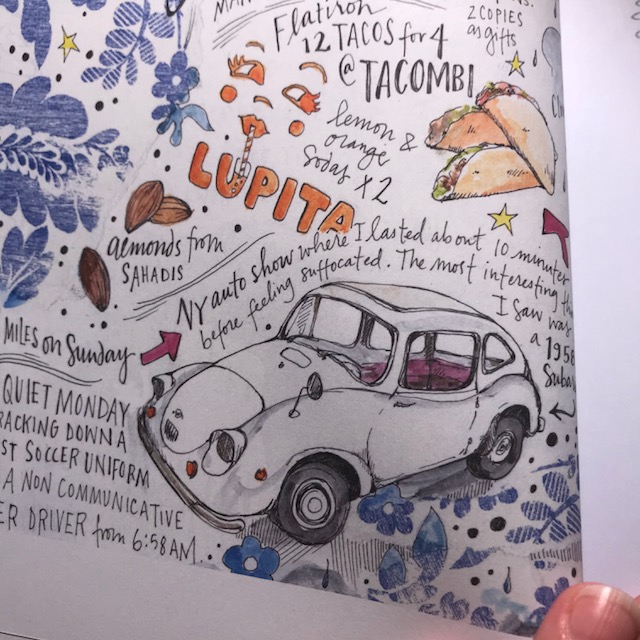 2 COPIES
as gifts
Flatiron
12 TACOS for 4
@ TACOMBI
lemon &
orange
Sodas x 2
LUPITA
almonds from
SAHADIS
NY auto show where I lasted about 10 minutes
before feeling suffocated. The most interesting
I saw was
a 1958
Subaru
MILES on Sunday
QUIET MONDAY
RACKING DOWN A
ST SOCCER UNIFORM
A NON COMMUNICATIVE
ER DRIVER from 6:58 AM